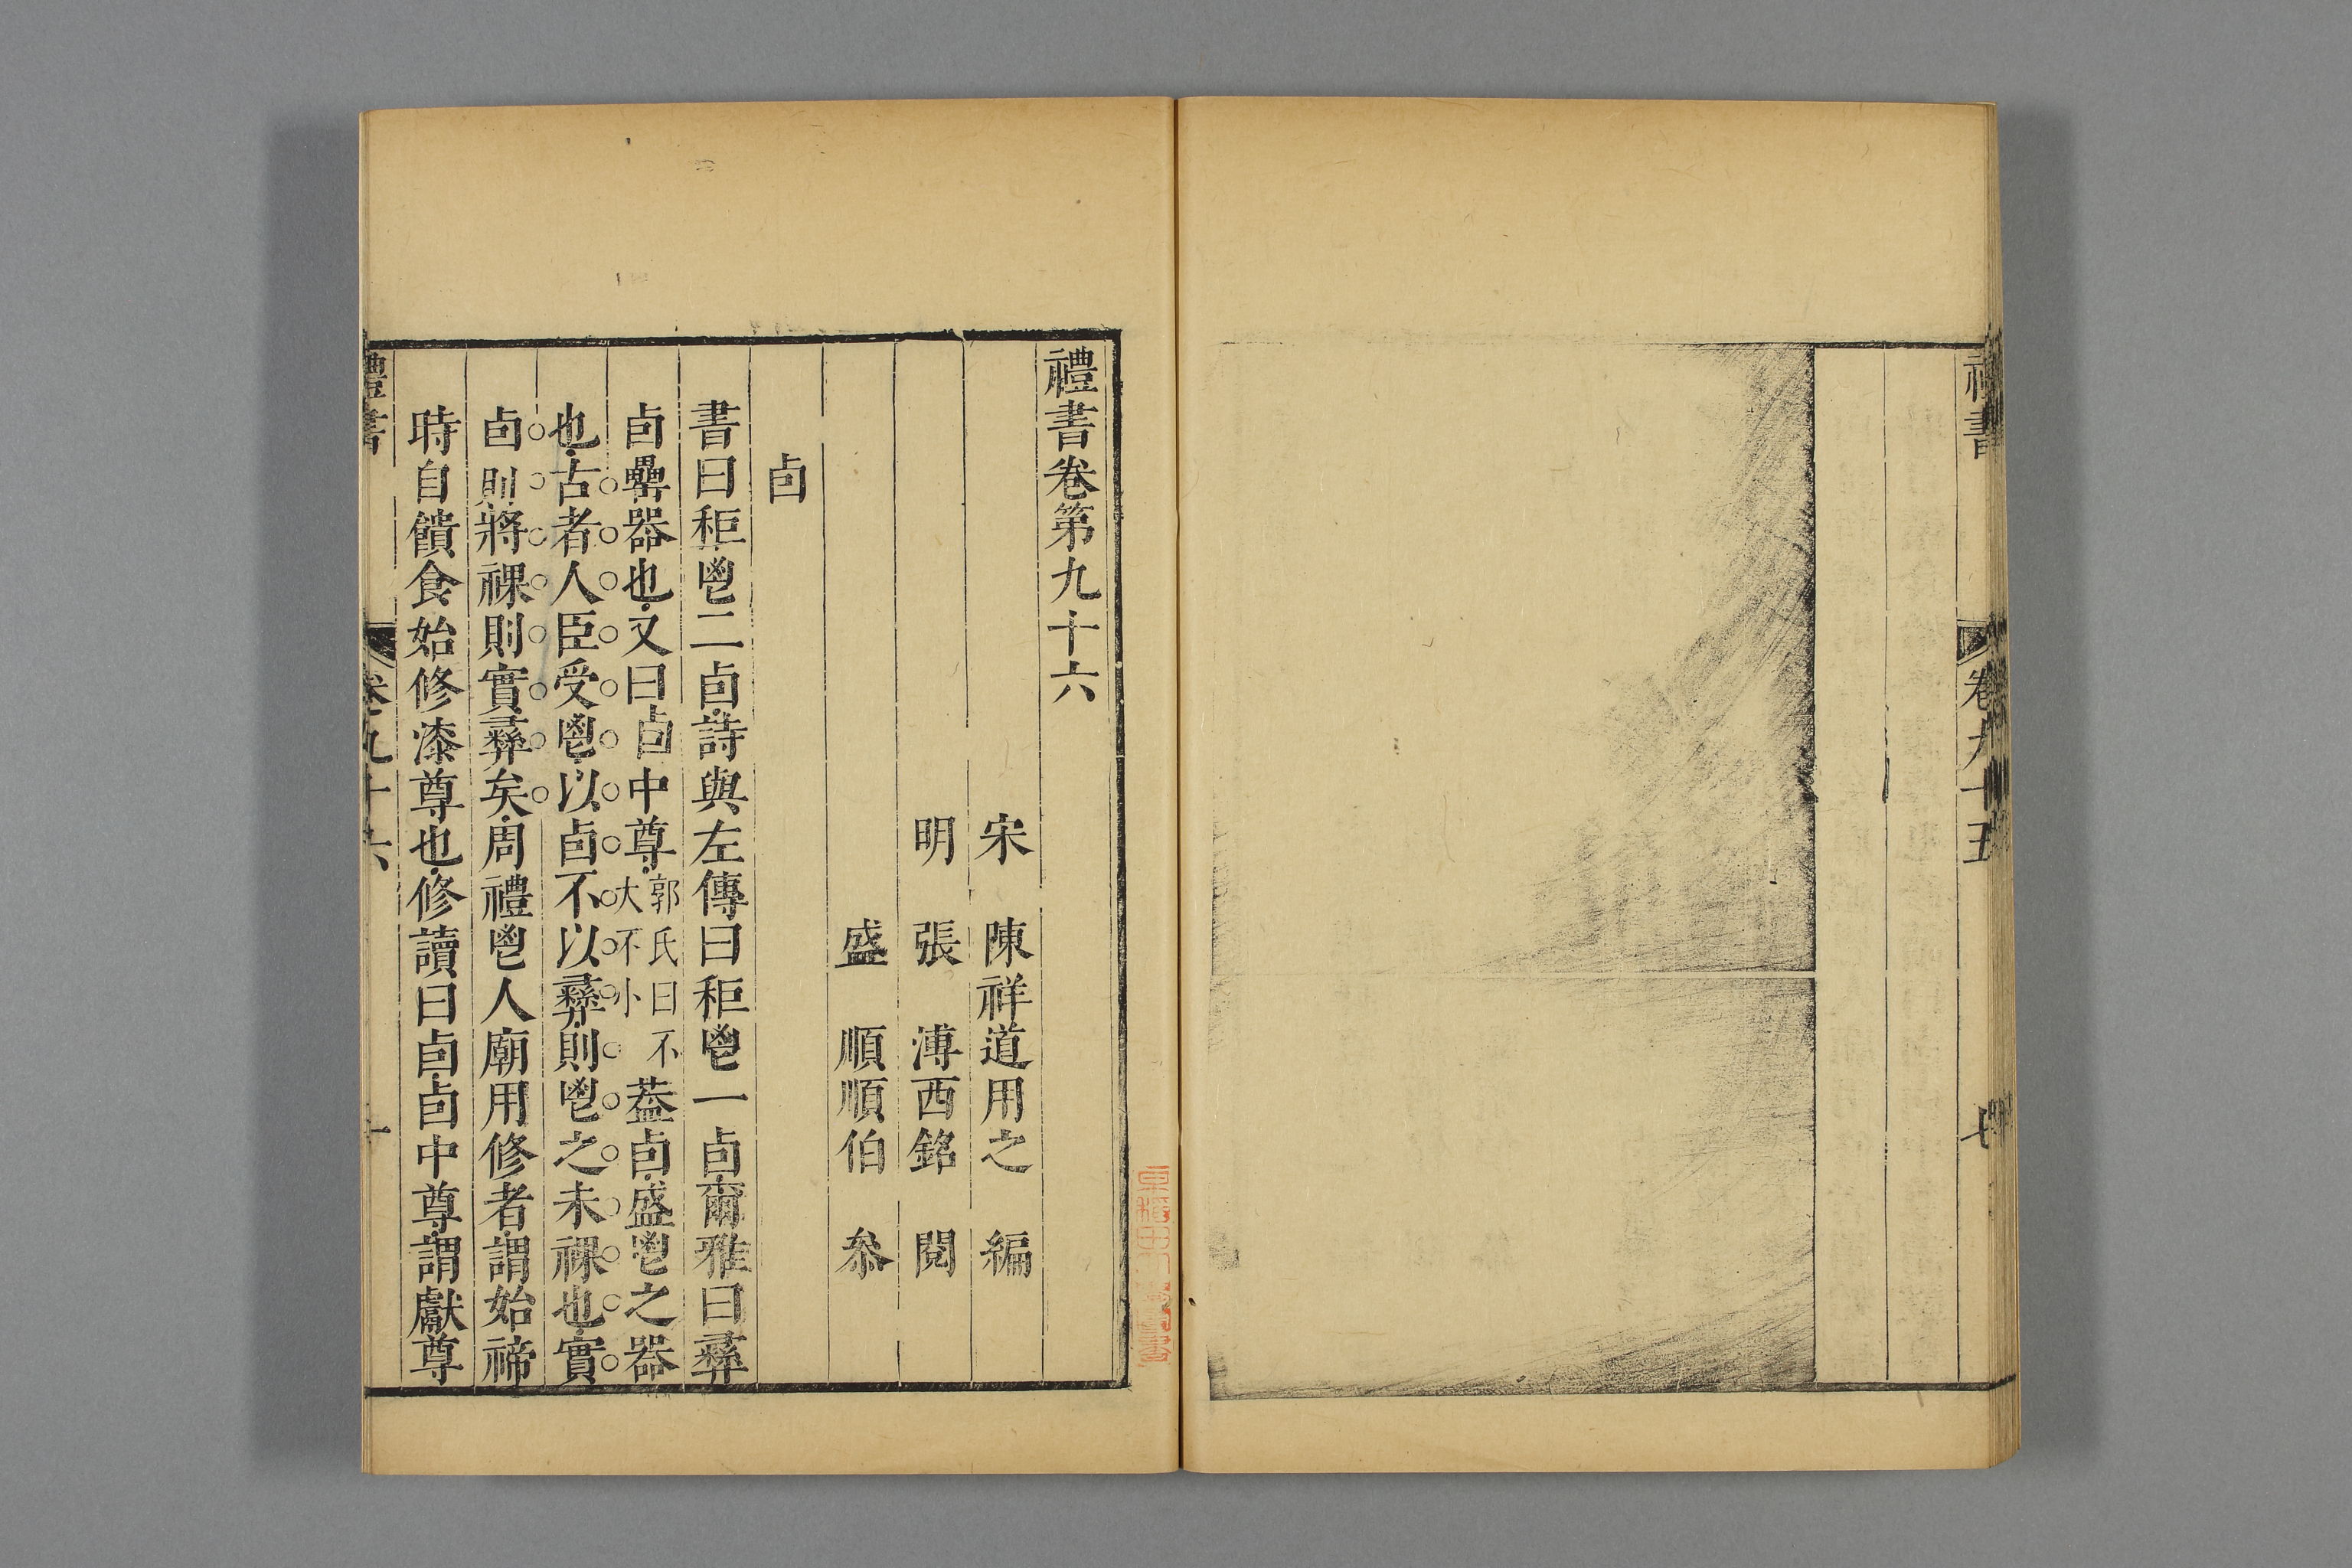 禮書
卷九十五
禮書卷第九十六
宋　陳祥道用之　編
明　張　溥西銘　閱
盛　順順伯　叅
卣
書曰秬鬯二卣詩與左傳曰秬鬯一卣爾雅曰彞
卣罍器也又曰卣中尊郭氏曰不大不小葢卣盛鬯之器
也古者人臣受鬯以卣不以彞則鬯之未祼也實
卣則將祼則實彞矣周禮鬯人廟用修者謂始禘
時自饋食始修漆尊也修讀曰卣卣中尊謂獻尊
禮書
卷九十六
一